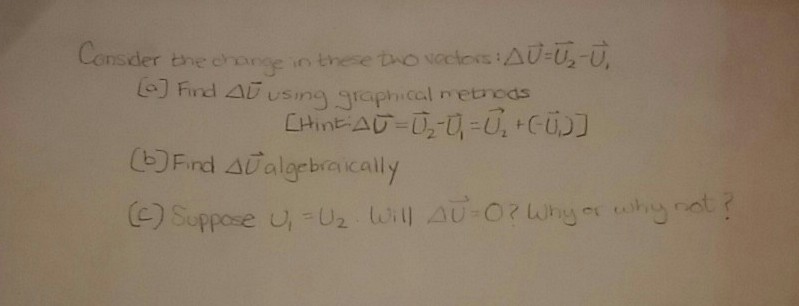 Consider the change in these two vectors: ΔU⃗=U⃗₂-U⃗₁
(a) Find ΔU⃗ using graphical methods
[Hint: ΔU⃗=U⃗₂-U⃗₁=U⃗₂+(-U⃗₁)]
(b) Find ΔU⃗ algebraically
(c) Suppose U₁=U₂. Will ΔU⃗=0? Why or why not?